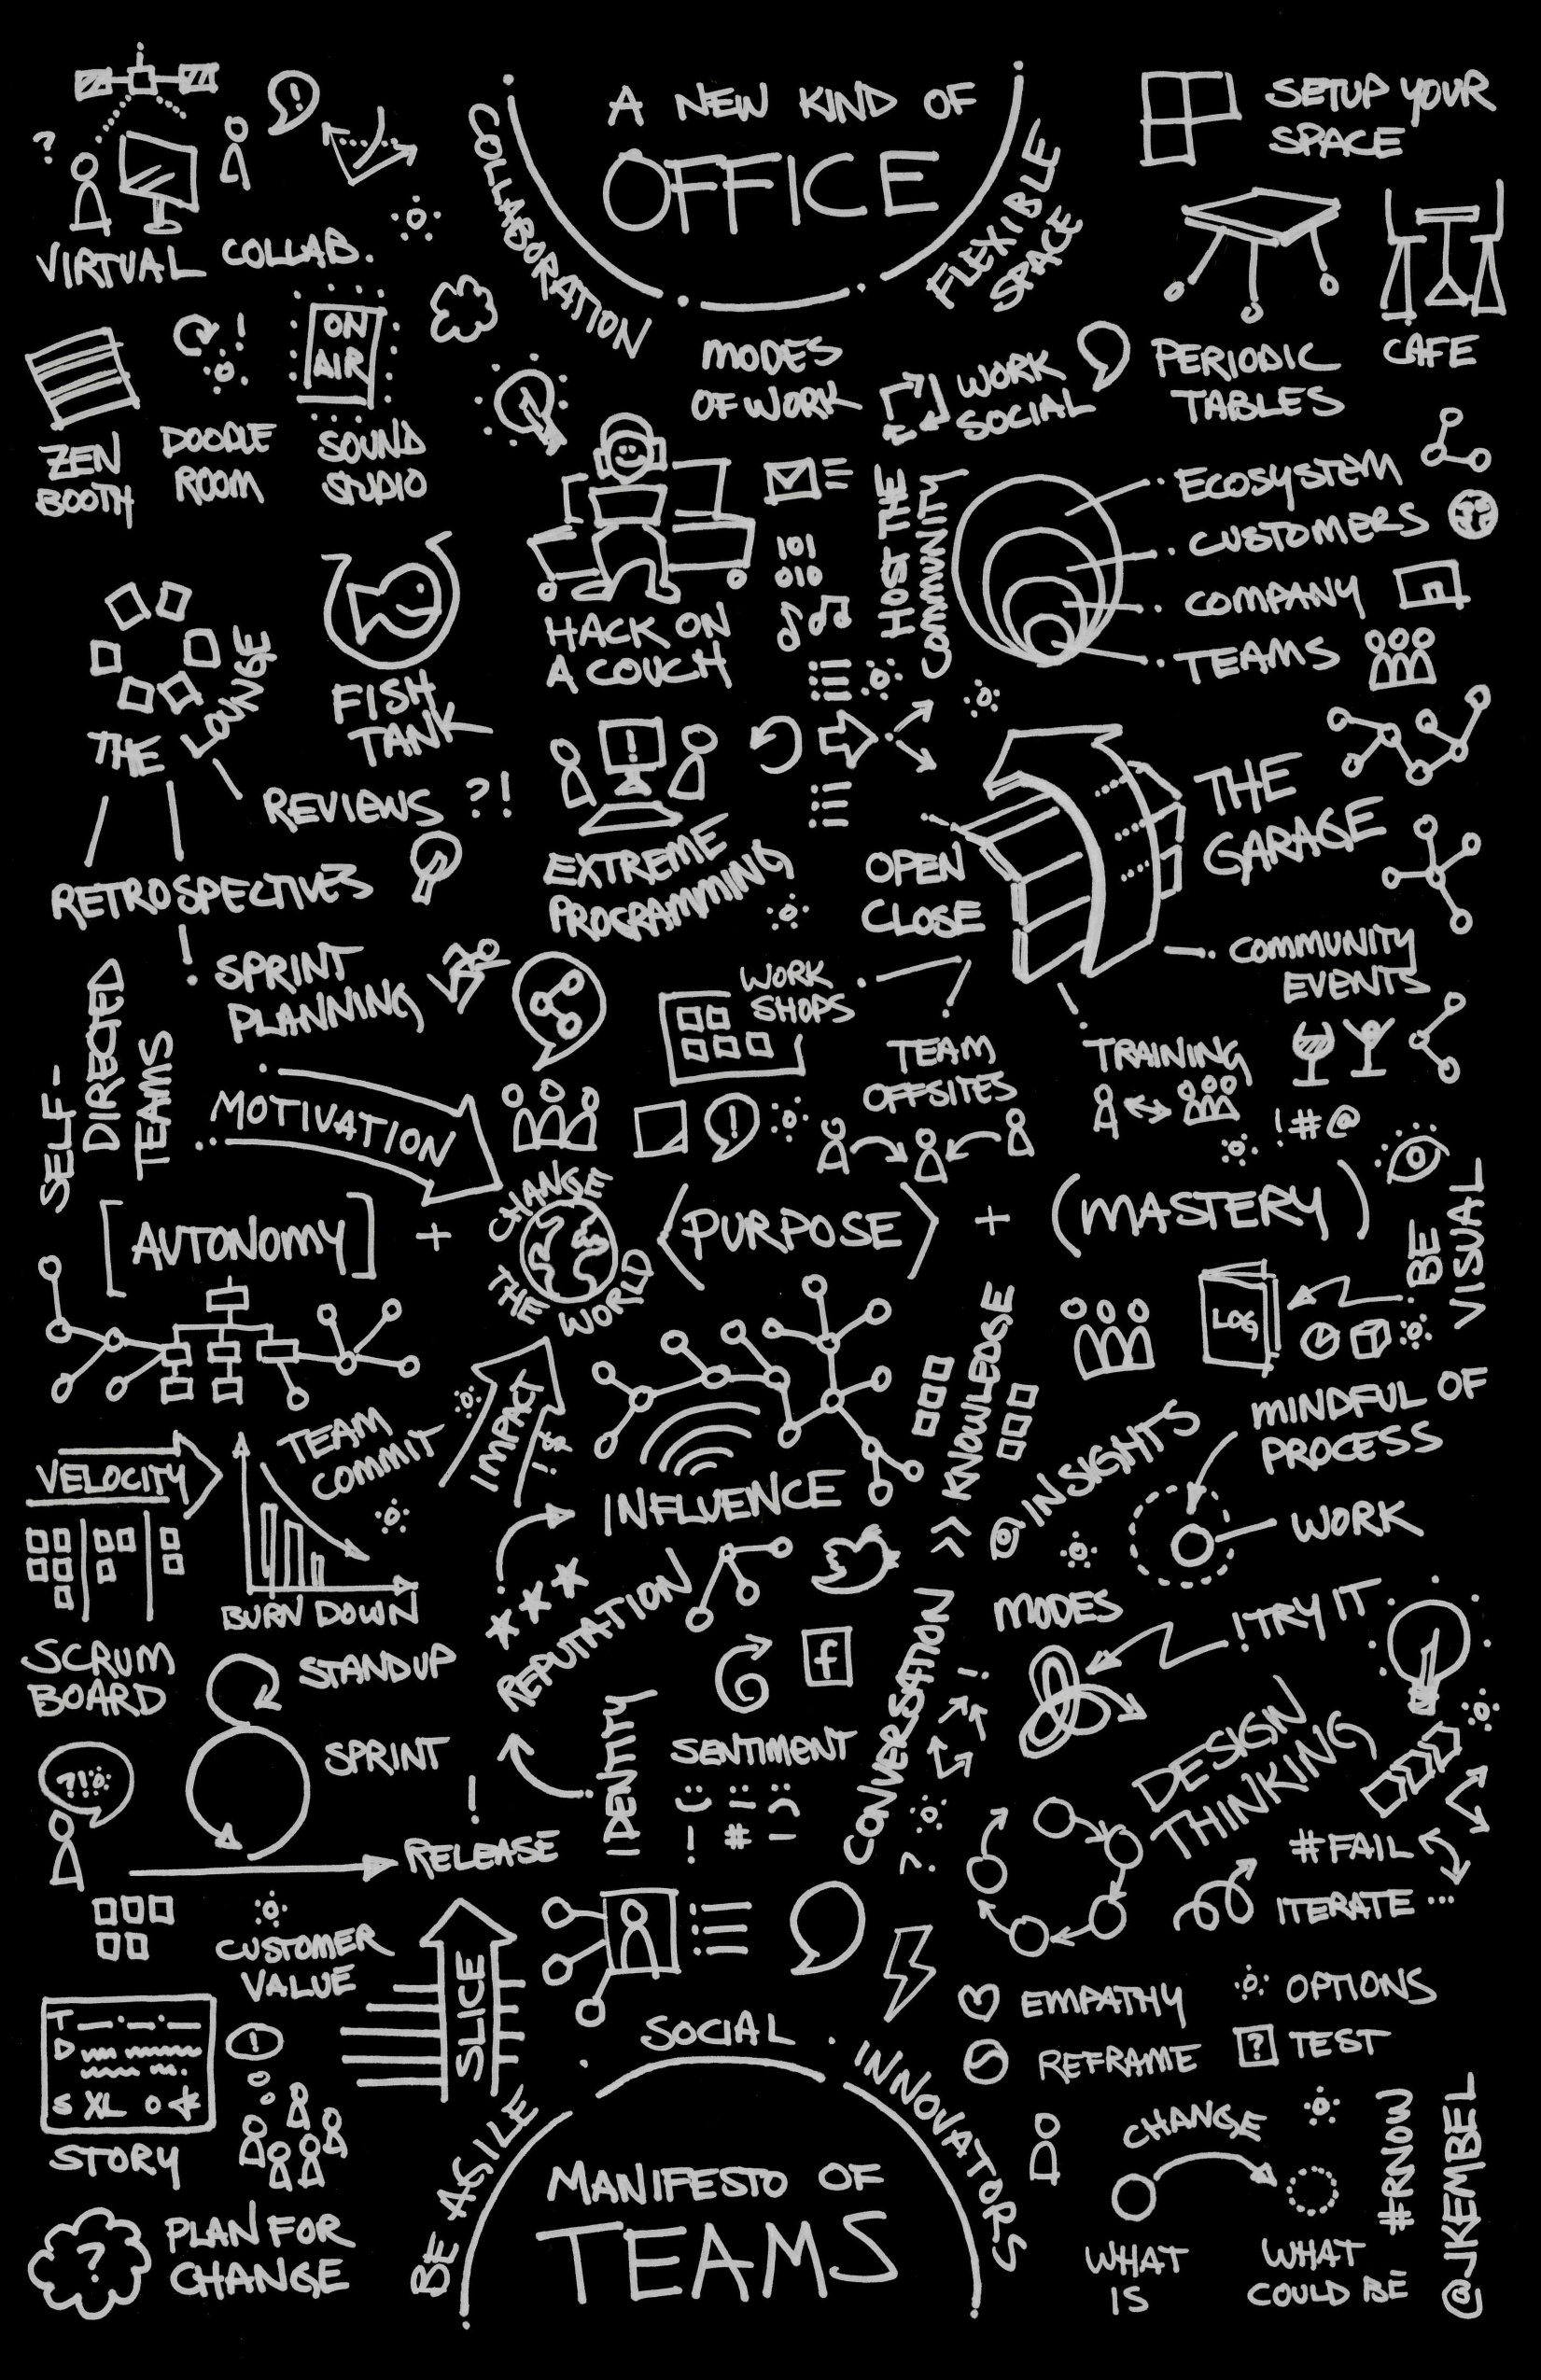 A NEW KIND OF
OFFICE
COLLABORATION
FLEXIBLE
SPACE
SETUP YOUR
SPACE
?
!
VIRTUAL COLLAB.
PERIODIC
TABLES
CAFE
!
ON
AIR
ZEN
BOOTH
DOODLE
ROOM
SOUND
STUDIO
MODES
OF WORK
WORK
SOCIAL
HOST THE
COMMUNITY
ECOSYSTEM
CUSTOMERS
COMPANY
TEAMS
101
010
HACK ON
A COUCH
FISH
TANK
THE
LOUNGE
REVIEWS ?!
RETROSPECTIVES
!
EXTREME
PROGRAMMING
OPEN
CLOSE
THE
GARAGE
COMMUNITY
EVENTS
SPRINT
PLANNING
WORK
SHOPS
TEAM
OFFSITES
TRAINING
!#@
SELF-
DIRECTED
TEAMS
MOTIVATION
!
[AUTONOMY] +
CHANGE
THE WORLD
<PURPOSE> + (MASTERY)
BE
VISUAL
LOG
KNOWLEDGE
MINDFUL OF
PROCESS
WORK
INSIGHTS
VELOCITY
TEAM
COMMIT
IMPACT
INFLUENCE
BURN DOWN
SCRUM
BOARD
STANDUP
SPRINT
?!
RELEASE
REPUTATION
f
IDENTITY
SENTIMENT
! # -
CONVERSATION
!
?
MODES
! TRY IT
DESIGN
THINKING
#FAIL
ITERATE ...
CUSTOMER
VALUE
SLICE
EMPATHY
OPTIONS
REFRAME
? TEST
T
D
S XL
!
STORY
?
PLAN FOR
CHANGE
BE AGILE
SOCIAL
INNOVATORS
MANIFESTO OF
TEAMS
CHANGE
WHAT
IS
WHAT
COULD BE
#RNOW
@JKEMBEL